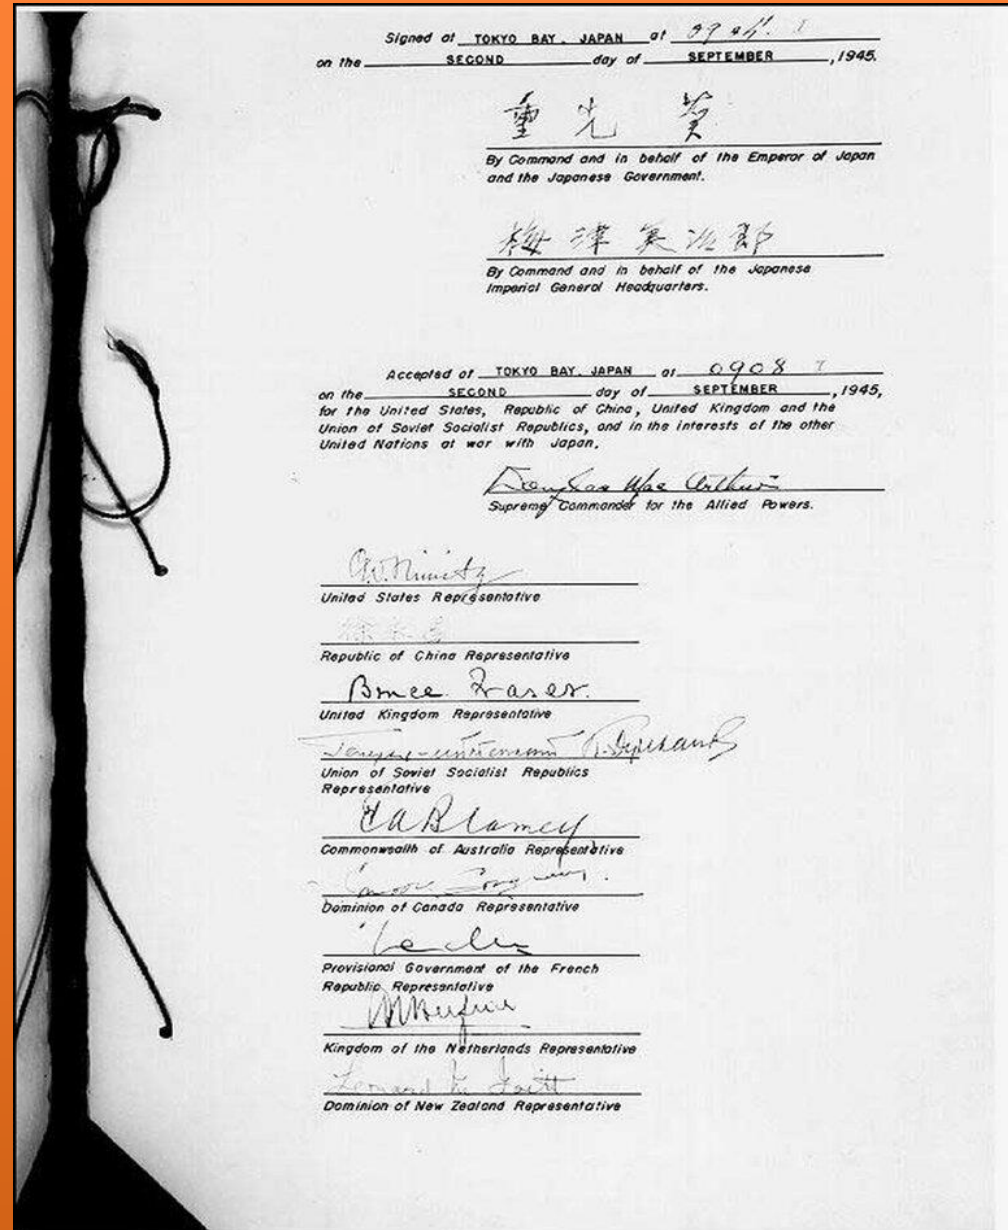 Signed at TOKYO BAY, JAPAN at 0904 I
on the SECOND day of SEPTEMBER, 1945.
重光 葵
By Command and in behalf of the Emperor of Japan
and the Japanese Government.
梅津美治郎
By Command and in behalf of the Japanese
Imperial General Headquarters.
Accepted at TOKYO BAY, JAPAN at 0908 I
on the SECOND day of SEPTEMBER, 1945,
for the United States, Republic of China, United Kingdom and the
Union of Soviet Socialist Republics, and in the interests of the other
United Nations at war with Japan.
Douglas MacArthur
Supreme Commander for the Allied Powers.
C.W. Nimitz
United States Representative
徐永昌
Republic of China Representative
Bruce Fraser.
United Kingdom Representative
Union of Soviet Socialist Republics
Representative
T A Blamey
Commonwealth of Australia Representative
Dominion of Canada Representative
Leclerc
Provisional Government of the French
Republic Representative
Kingdom of the Netherlands Representative
Leonard M Isitt
Dominion of New Zealand Representative